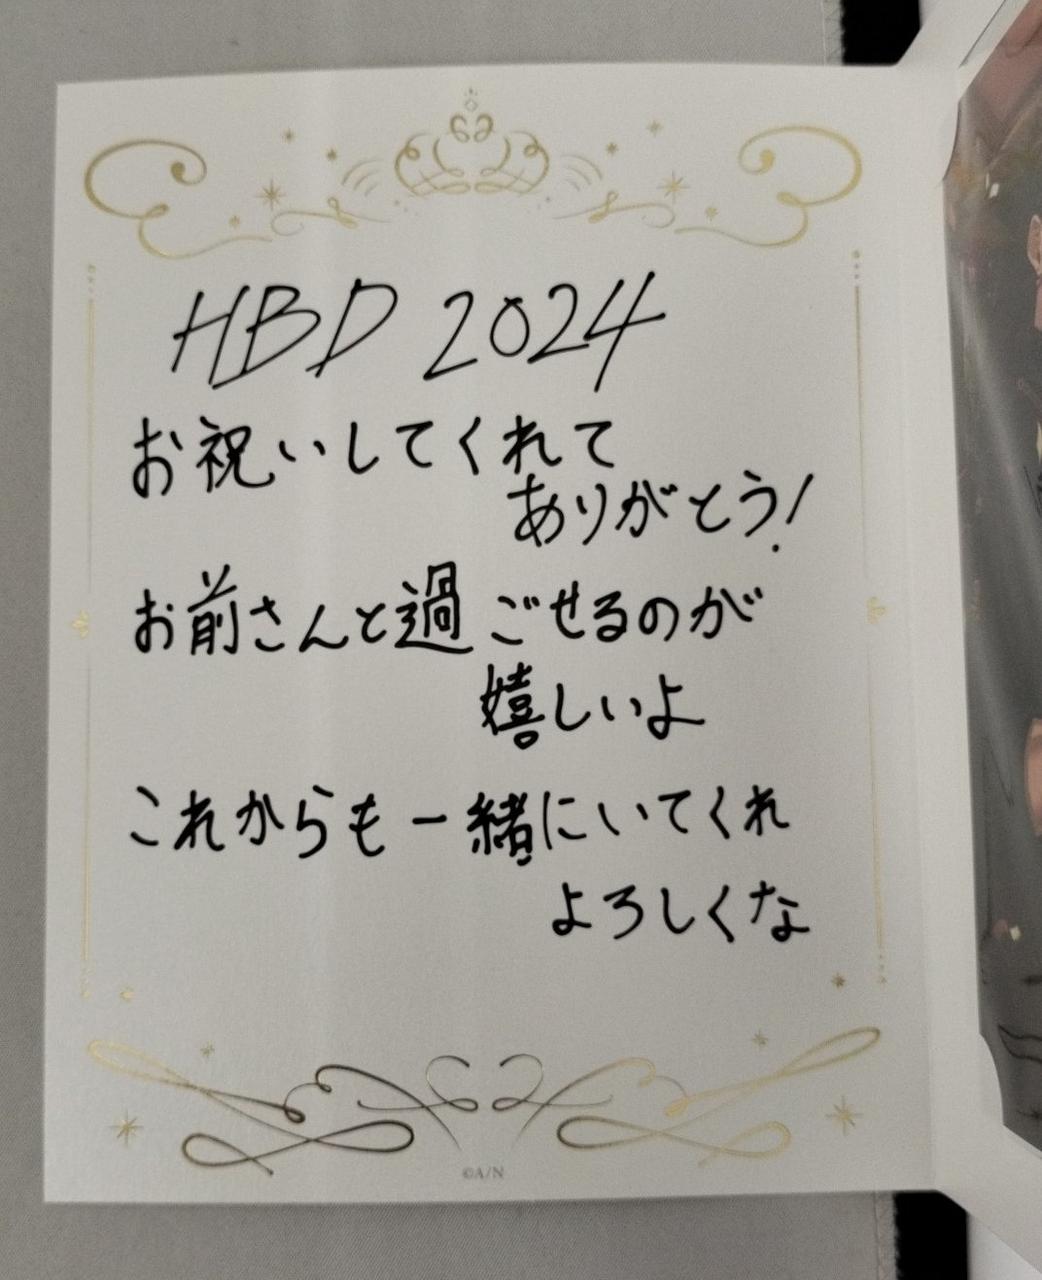 HBD 2024
お祝いしてくれて
ありがとう!
お前さんと過ごせるのが
嬉しいよ
これからも一緒にいてくれ
よろしくな
©A/N